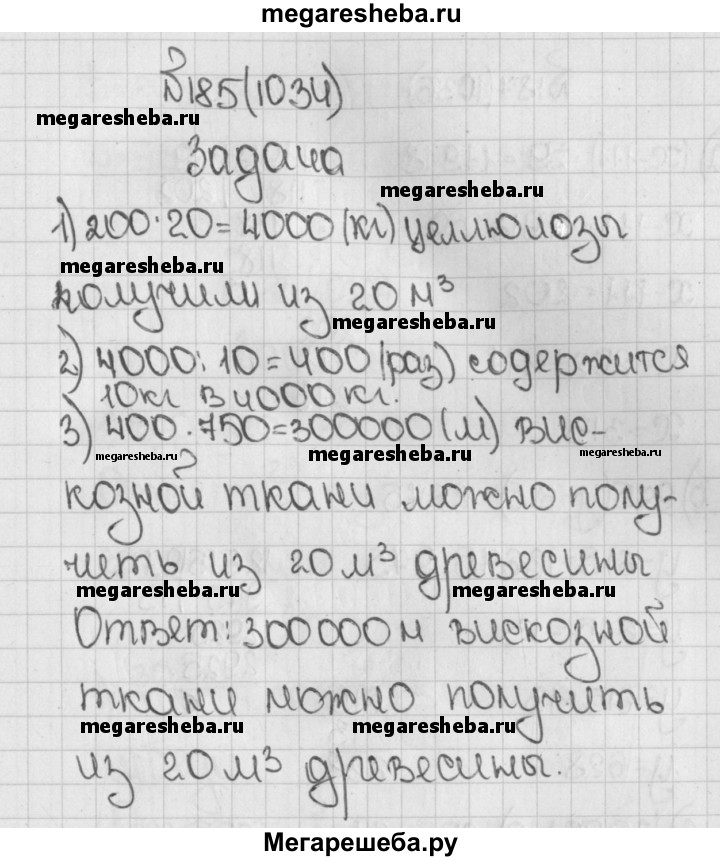 megaresheba.ru
№185(1034)
megaresheba.ru
Задача
megaresheba.ru
1) 200·20=4000(кг) целлюлозы
megaresheba.ru
получили из 20 м³
megaresheba.ru
2) 4000:10=400(раз) содержится
10кг в 4000кг.
3) 400·750=300000(м) вис-
megaresheba.ru megaresheba.ru megaresheba.ru
козной ткани можно полу-
чить из 20 м³ древесины
megaresheba.ru megaresheba.ru
Ответ: 300000м вискозной
ткани можно получить
megaresheba.ru megaresheba.ru
из 20 м³ древесины.
Мегарешеба.ру